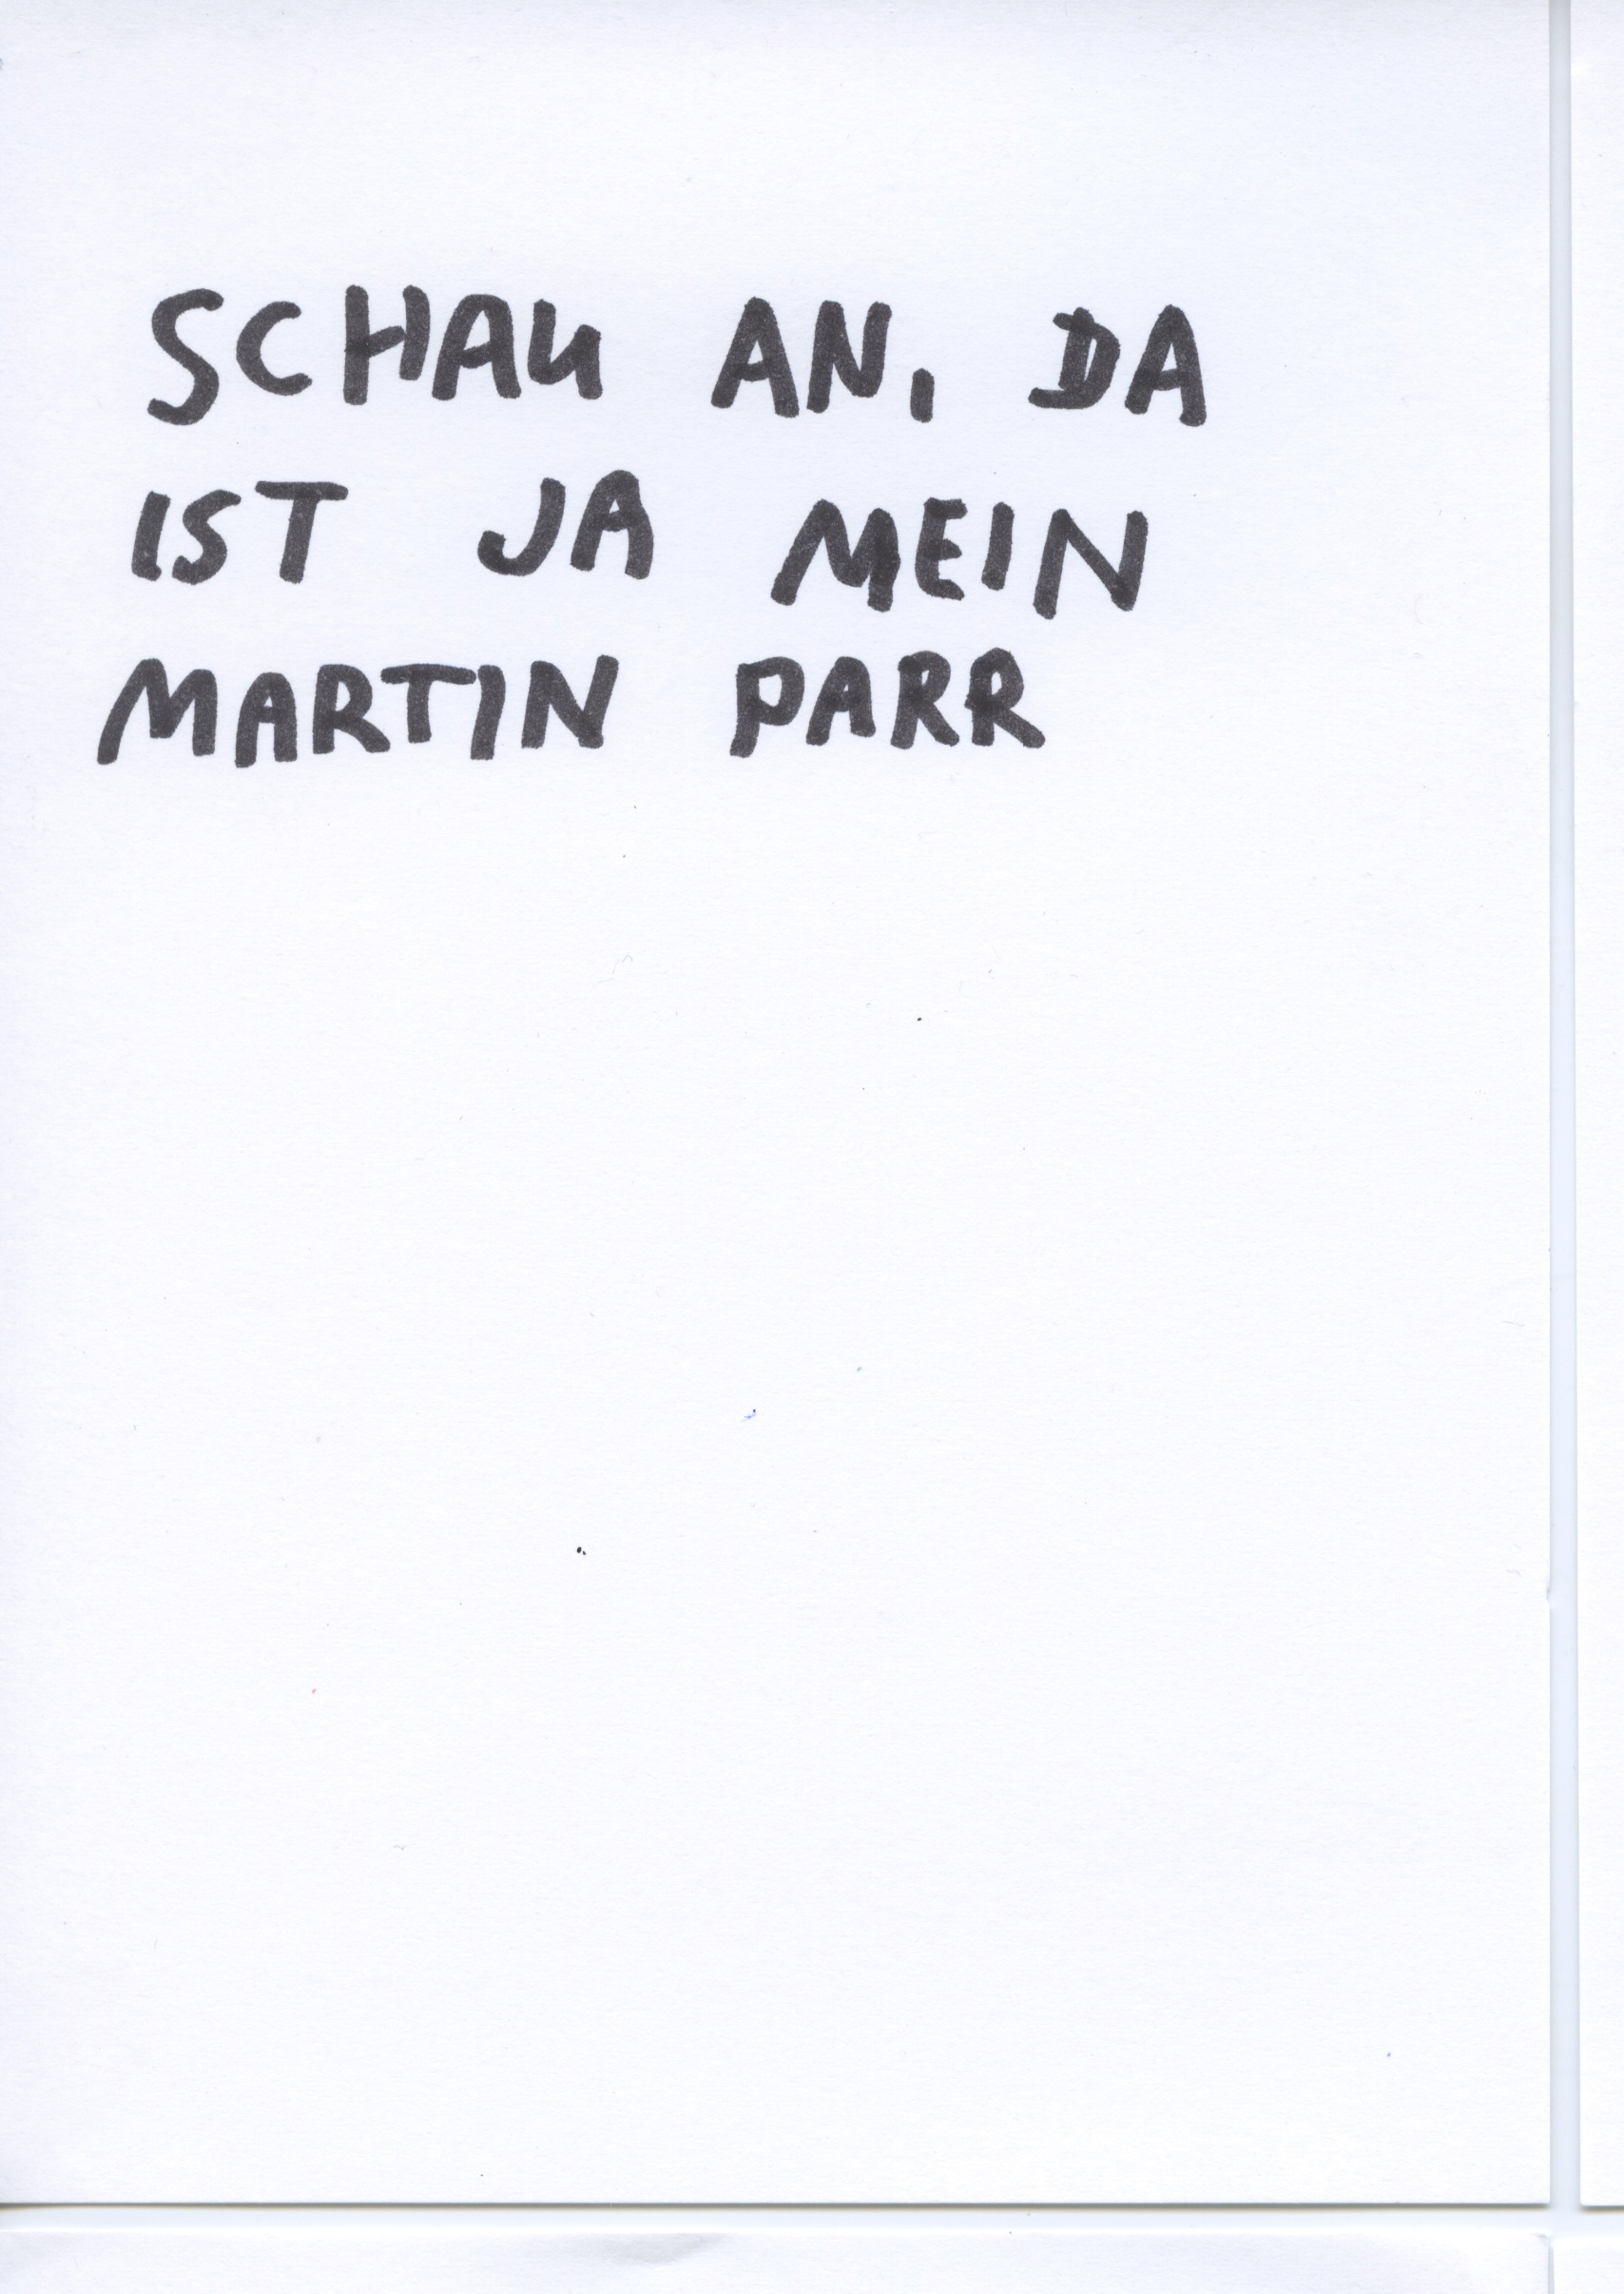 SCHAU AN, DA
IST JA MEIN
MARTIN PARR